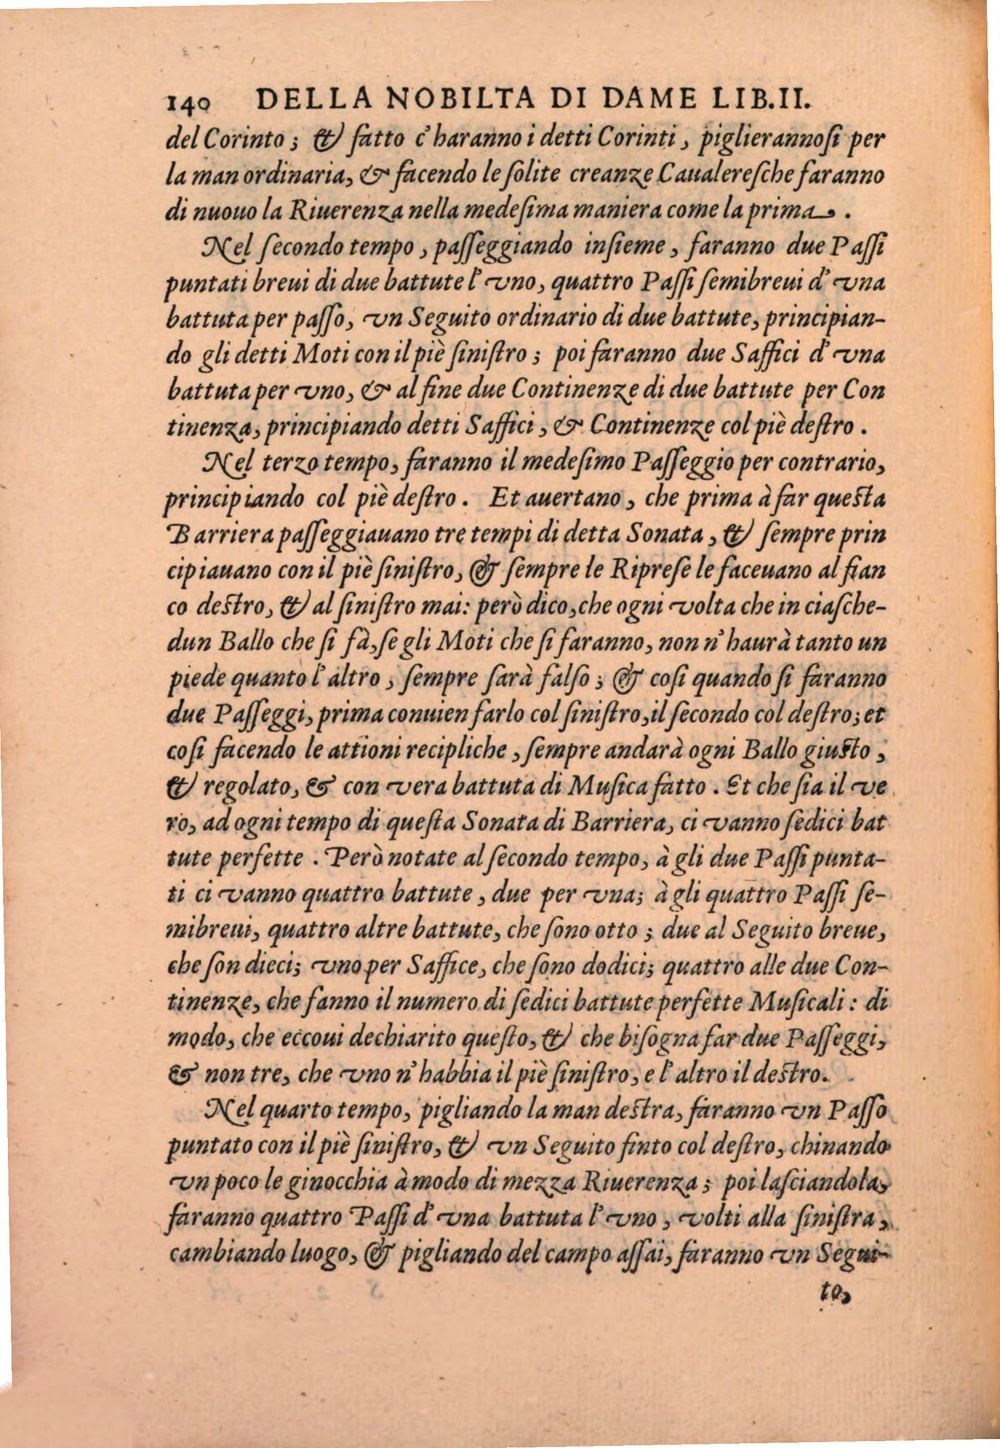 140 DELLA NOBILTA DI DAME LIB.II.
del Corinto; & fatto c'haranno i detti Corinti, piglierannosi per
la man ordinaria, & facendo le solite creanze Caualeresche faranno
di nuouo la Riuerenza nella medesima maniera come la prima.
Nel secondo tempo, passeggiando insieme, faranno due Passi
puntati breui di due battute l'vno, quattro Passi semibreui d'vna
battuta per passo, vn Seguito ordinario di due battute, principian-
do gli detti Moti con il piè sinistro; poi faranno due Saffici d'vna
battuta per vno, & al fine due Continenze di due battute per Con
tinenza, principiando detti Saffici, & Continenze col piè destro.
Nel terzo tempo, faranno il medesimo Passeggio per contrario,
principiando col piè destro. Et auertano, che prima à far questa
Barriera passeggiauano tre tempi di detta Sonata, & sempre prin
cipiauano con il piè sinistro, & sempre le Riprese le faceuano al fian
co destro, & al sinistro mai: però dico, che ogni volta che in ciasche-
dun Ballo che si fà, se gli Moti che si faranno, non n'haurà tanto un
piede quanto l'altro, sempre sarà falso; & cosi quando si faranno
due Passeggi, prima conuien farlo col sinistro, il secondo col destro; et
cosi facendo le attioni recipliche, sempre andarà ogni Ballo giusto,
& regolato, & con vera battuta di Musica fatto. Et che sia il ve
ro, ad ogni tempo di questa Sonata di Barriera, ci vanno sedici bat
tute perfette. Però notate al secondo tempo, à gli due Passi punta-
ti ci vanno quattro battute, due per vna; à gli quattro Passi se-
mibreui, quattro altre battute, che sono otto; due al Seguito breue,
che son dieci; vno per Saffice, che sono dodici; quattro alle due Con-
tinenze, che fanno il numero di sedici battute perfette Musicali: di
modo, che eccoui dechiarito questo, & che bisogna far due Passeggi,
& non tre, che vno n'habbia il piè sinistro, e l'altro il destro.
Nel quarto tempo, pigliando la man destra, faranno vn Passo
puntato con il piè sinistro, & vn Seguito finto col destro, chinando
vn poco le ginocchia à modo di mezza Riuerenza; poi lasciandola,
faranno quattro Passi d'vna battuta l'vno, volti alla sinistra,
cambiando luogo, & pigliando del campo assai, faranno vn Segui-
to,